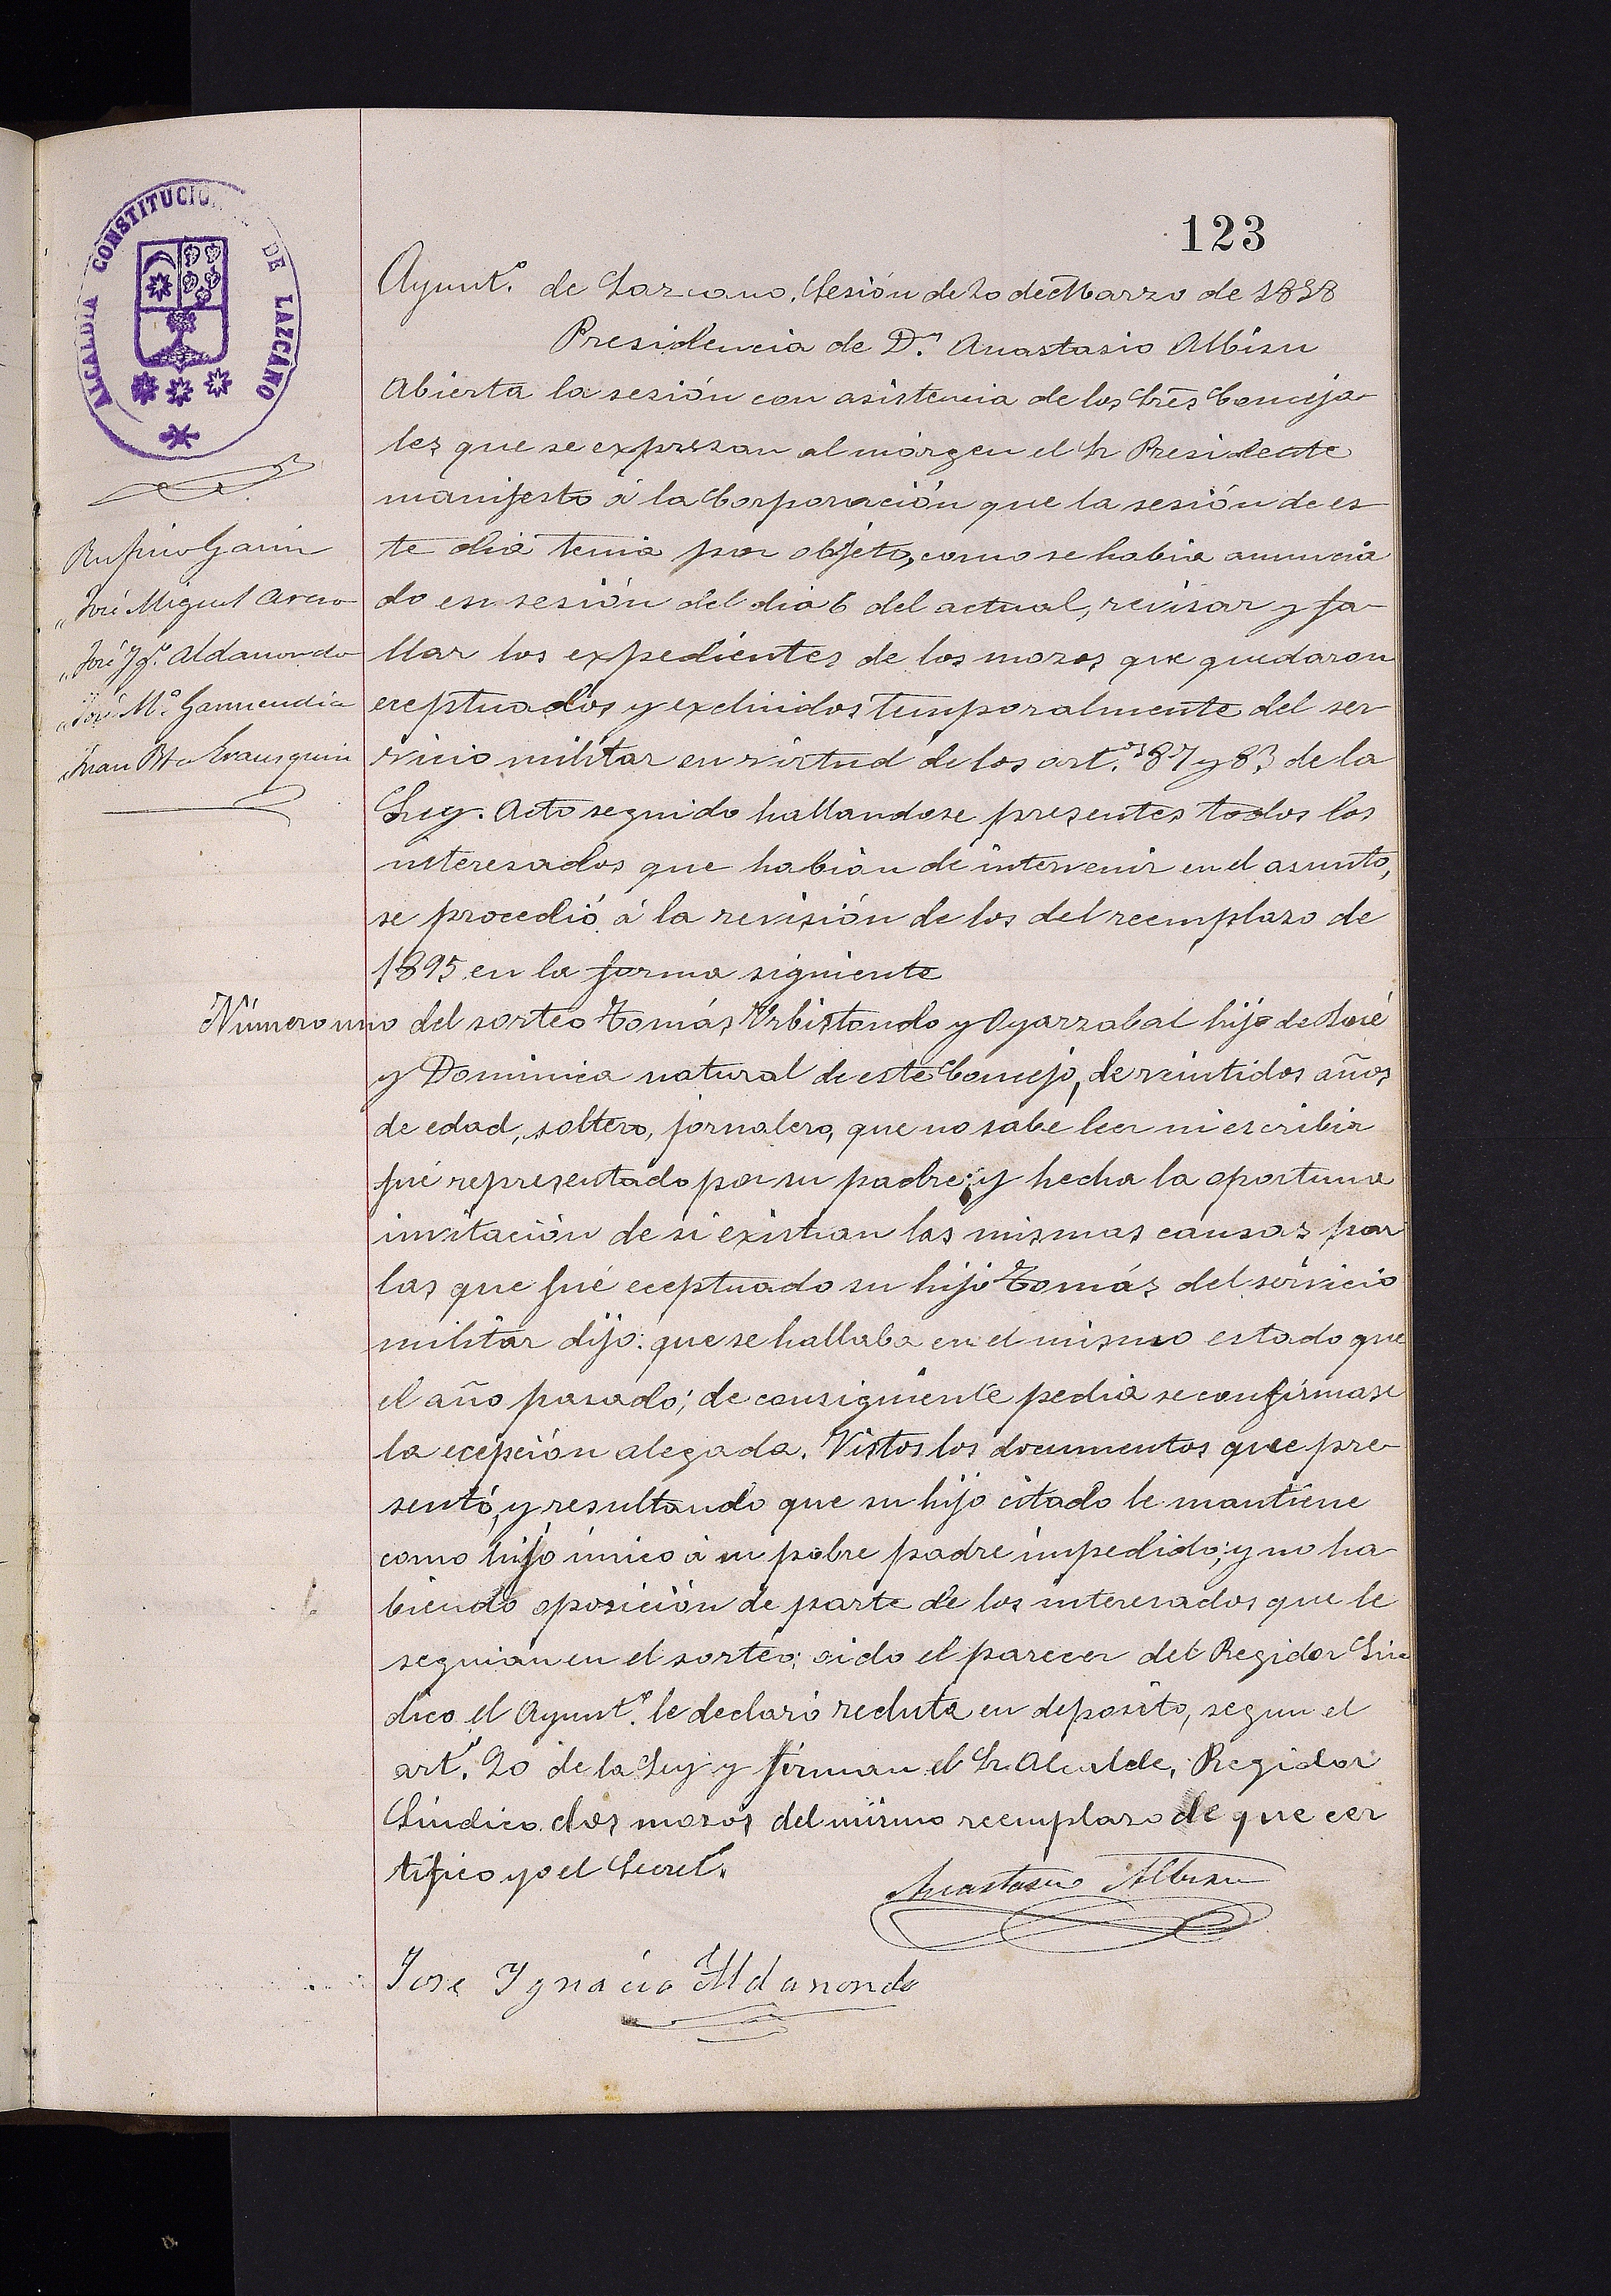 123
ALCALDIA CONSTITUCIONAL DE LAZCANO
Ayunt.º de Lazcano. Sesión de 20 de Marzo de 1898
Presidencia de D.n Anastasio Albisu
Rufino Garin
„ José Miguel
„ José Ygº. Aldanondo
„ José M.ª Garmendia
„ Juan Bta Irausquin
Abierta la sesión con asistencia de los Sres Conceja-
les que se expresan al márgen el Sr Presidente
manifesto á la Corporación que la sesión de es-
te dia tenia por objeto, como se habia anuncia
do en sesión del dia 6 del actual, revisar y fa-
llar los expedientes de los mozos que quedaron
eceptuados y excluidos temporalmente del ser-
vicio militar en virtud de los art.os 87 y 83 de la
Ley. Acto seguido hallandose presentes todos los
interesados que habian de intervenir en el asunto,
se procedió á la revisión de los del reemplazo de
1895 en la forma siguiente
Número uno del sorteo Tomás Urbistondo y Oyarzabal hijo de José
y Dominica natural de este Concejo, de veintidos años
de edad, soltero, jornalero, que no sabe leer ni escribir
fué representado por su padre; y hecha la oportuna
invitación de si existian las mismas causas por
las que fué eceptuado su hijo Tomás del servicio
militar dijo: que se hallaba en el mismo estado que
el año pasado; de consiguiente pedia se confirmase
la ecepción alegada. Vistos los documentos que pre-
sentó, y resultando que su hijo citado le mantiene
como hijo único á su pobre padre impedido; y no ha-
biendo oposición de parte de los interesados que le
seguian en el sorteo; oido el parecer del Regidor Sin
dico el Ayunt.º le declaró recluta en deposito, segun el
art.º 90 de la Ley y firman el Sr. Alcalde, Regidor
Síndico dos mozos del mismo reemplazo de que cer
tifico yo el Secret.º
Anastasio Albisu
Jose Ygnacio Aldanondo